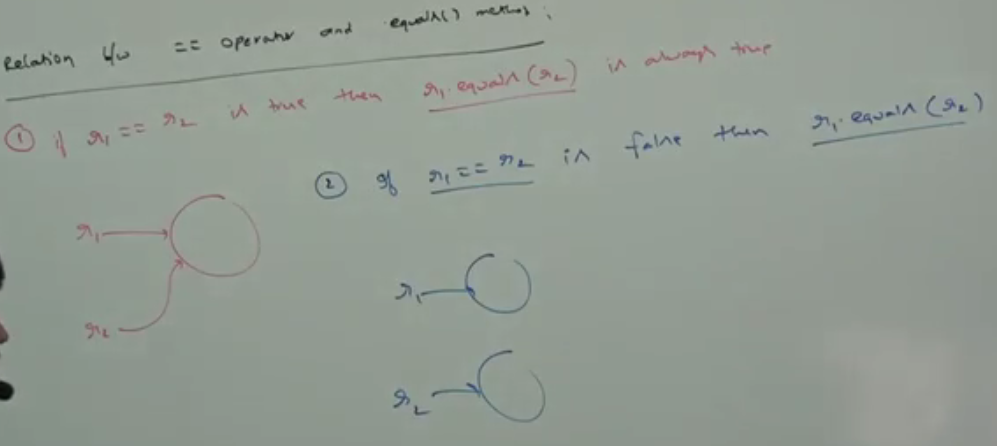 Relation b/w == operator and equals() method :
① if r1 == r2 is true then r1.equals(r2) is always true
② If r1 == r2 is false then r1.equals(r2)
r1
r2
r1
r2